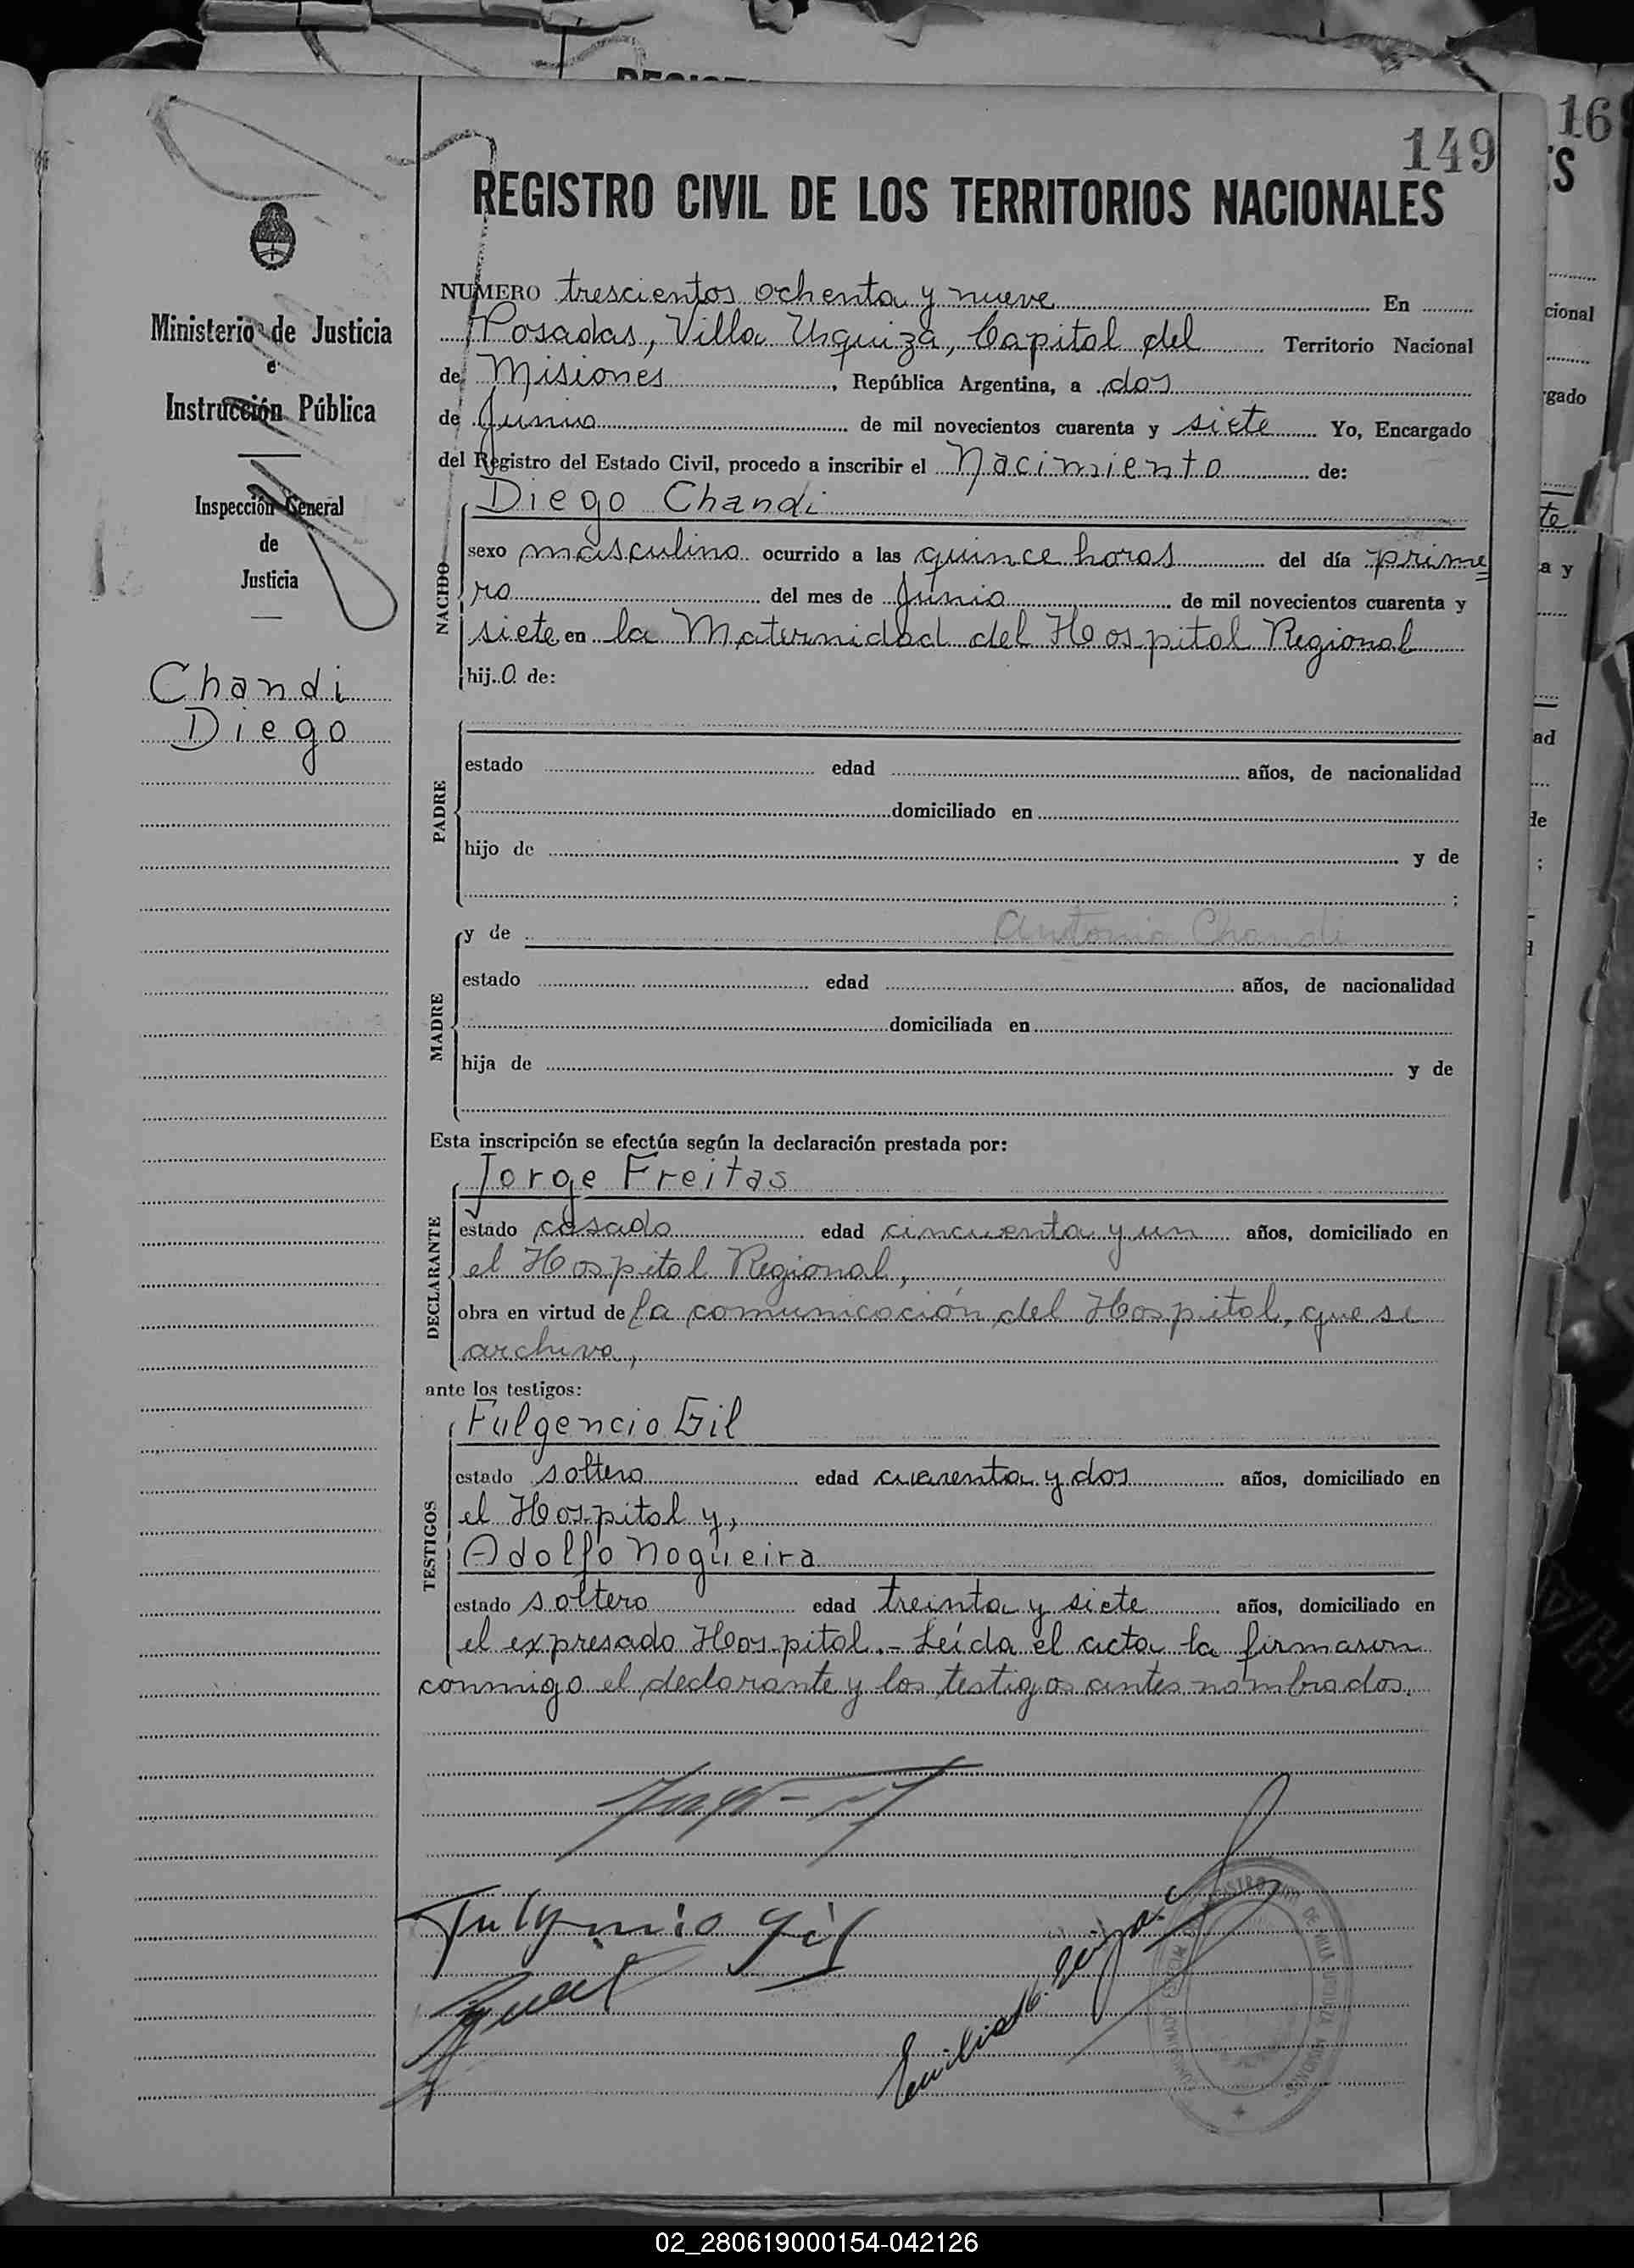 149
16
REGISTRO CIVIL DE LOS TERRITORIOS NACIONALES
Ministerio de Justicia
e
Instrucción Pública
Inspección General
de
Justicia
Chandi
Diego
NUMERO trescientos ochenta y nueve En
Posadas, Villa Urquiza, Capital del Territorio Nacional
de Misiones, República Argentina, a dos
de Junio de mil novecientos cuarenta y siete Yo, Encargado
del Registro del Estado Civil, procedo a inscribir el Nacimiento de:
NACIDO
Diego Chandi
sexo masculino ocurrido a las quince horas del día prime=
ro del mes de Junio de mil novecientos cuarenta y
siete en la Maternidad del Hospital Regional
hijo de:
PADRE
estado edad años, de nacionalidad
domiciliado en
hijo de y de
;
MADRE
y de Antonia Chandi
estado edad años, de nacionalidad
domiciliada en
hija de y de
Esta inscripción se efectúa según la declaración prestada por:
DECLARANTE
Jorge Freitas
estado casado edad cincuenta y un años, domiciliado en
el Hospital Regional,
obra en virtud de la comunicación del Hospital, que se
archiva,
ante los testigos:
TESTIGOS
Fulgencio Gil
estado soltero edad cuarenta y dos años, domiciliado en
el Hospital y,
Adolfo Nogueira
estado soltero edad treinta y siete años, domiciliado en
el expresado Hospital.- Leída el acta la firmaron
conmigo el declarante y los testigos antes nombrados.
Fulgencio Gil
02_280619000154-042126